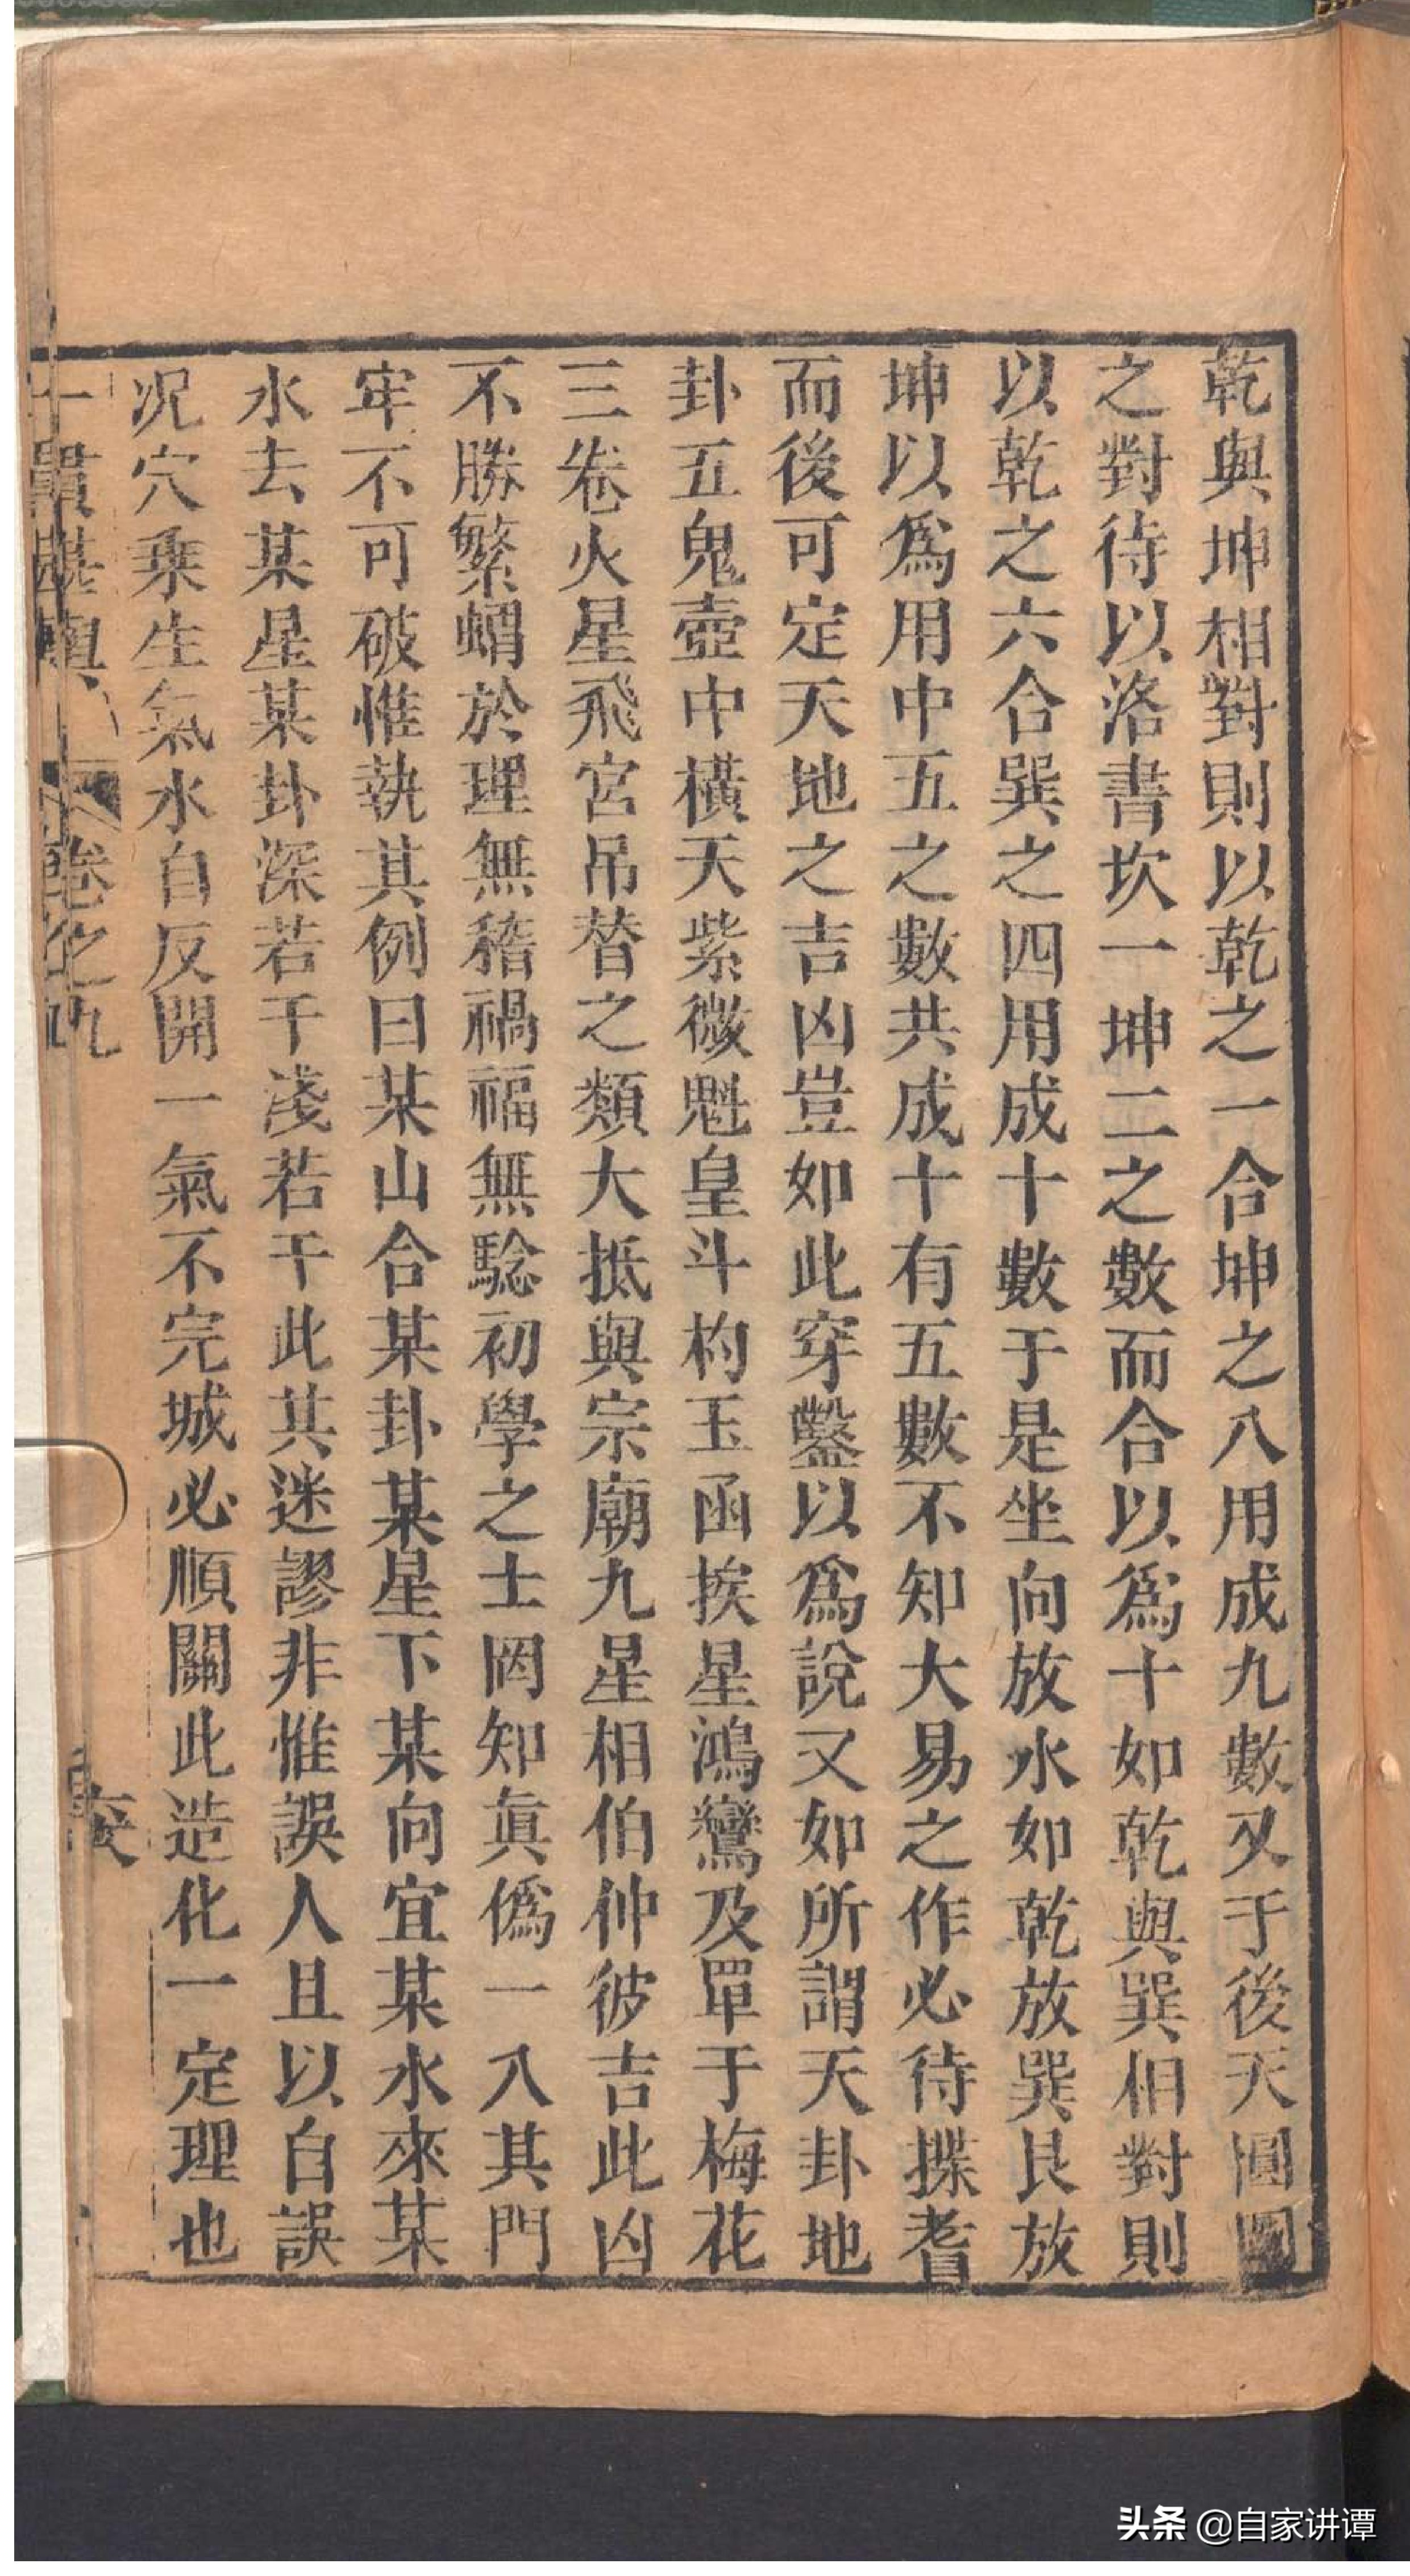 乾與坤相對則以乾之一合坤之八用成九數又于後天圓圖
之對待以洛書坎一坤二之數而合以爲十如乾與巽相對則
以乾之六合巽之四用成十數于是坐向放水如乾放巽艮放
坤以爲用中五之數共成十有五數不知大易之作必待揲蓍
而後可定天地之吉凶豈如此穿鑿以爲說又如所謂天卦地
卦五鬼壺中橫天紫微魁皇斗杓玉函挨星鴻鸞及單于梅花
三卷火星飛宮吊替之類大抵與宗廟九星相伯仲彼吉此凶
不勝繁蝟於理無稽禍福無驗初學之士罔知眞僞一入其門
牢不可破惟執其例曰某山合某卦某星下某向宜某水來某
水去某星某卦深若干淺若干此其迷謬非惟誤人且以自誤
况穴乗生氣水自反開一氣不完城必順關此造化一定理也
卷之九
头条 @自家讲谭